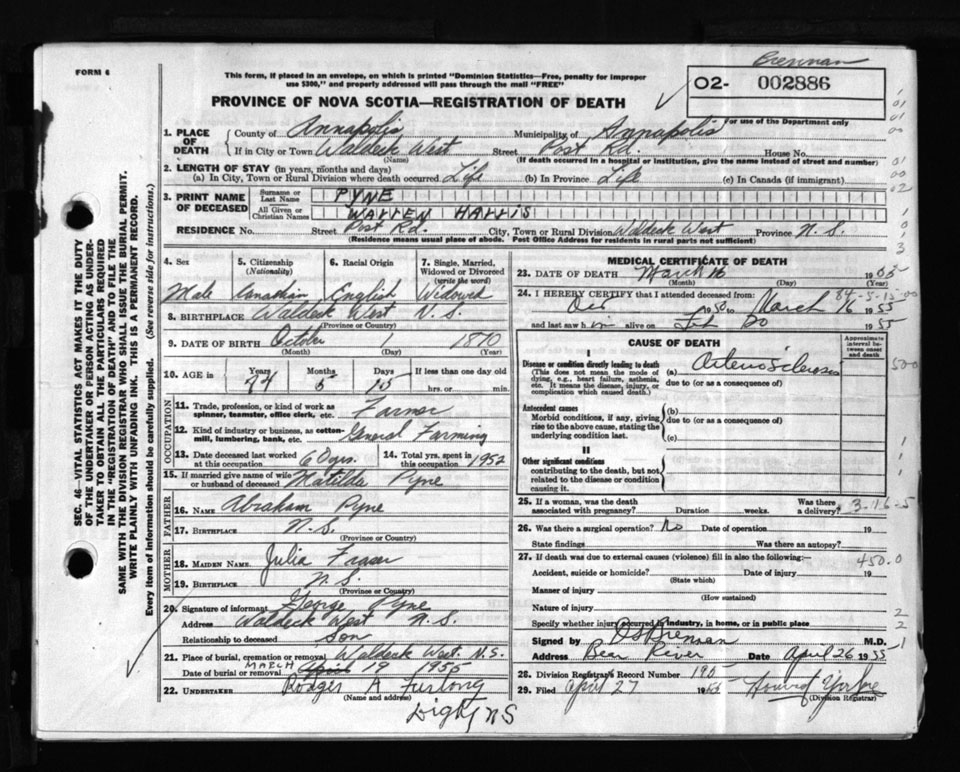 Brennan
FORM 6
This form, if placed in an envelope, on which is printed "Dominion Statistics—Free, penalty for improper
use $300," and properly addressed will pass through the mail "FREE"
O2- 002886
For use of the Department only
PROVINCE OF NOVA SCOTIA—REGISTRATION OF DEATH
1. PLACE OF DEATH
County of Annapolis Municipality of Annapolis
If in City or Town Waldeck West Street Post Rd. House No.
(Name) (If death occurred in a hospital or institution, give the name instead of street and number)
2. LENGTH OF STAY (in years, months and days)
(a) In City, Town or Rural Division where death occurred Life (b) In Province Life (c) In Canada (if immigrant)
3. PRINT NAME OF DECEASED
Surname or Last Name PYNE
All Given or Christian Names WALLEN HALLIS
RESIDENCE No. Street Post Rd. City, Town or Rural Division Waldeck West Province N.S.
(Residence means usual place of abode. Post Office Address for residents in rural parts not sufficient)
4. Sex 5. Citizenship (Nationality) 6. Racial Origin 7. Single, Married, Widowed or Divorced (write the word)
Male Canadian English Widowed
8. BIRTHPLACE Waldeck West N.S.
(Province or Country)
9. DATE OF BIRTH October 1 1870
(Month) (Day) (Year)
10. AGE in Years Months Days If less than one day old
5 15 hrs. or min.
OCCUPATION
11. Trade, profession, or kind of work as
spinner, teamster, office clerk, etc. Farmer
12. Kind of industry or business, as cotton-
mill, lumbering, bank, etc. General Farming
13. Date deceased last worked at this occupation 60 yrs. 14. Total yrs. spent in this occupation 1952
15. If married give name of wife
or husband of deceased Matilda Pyne
FATHER
16. Name Abraham Pyne
17. BIRTHPLACE N.S.
(Province or Country)
MOTHER
18. MAIDEN NAME Julia Fraser
19. BIRTHPLACE N.S.
(Province or Country)
20. Signature of informant George Pyne
Address Waldeck West N.S.
Relationship to deceased Son
21. Place of burial, cremation or removal Waldeck West. N.S.
MARCH
Date of burial or removal April 19 1955
22. UNDERTAKER Rodger A Furlong
(Name and address)
Digby NS
MEDICAL CERTIFICATE OF DEATH
23. DATE OF DEATH March 16 1955
(Month) (Day) (Year)
84-5-15-00
24. I HEREBY CERTIFY that I attended deceased from:
Dec 1950 to March 16 1955
and last saw him alive on Feb 20 1955
CAUSE OF DEATH
Approximate interval between onset and death
I
Disease or condition directly leading to death (a) Arterio Sclerosis
(This does not mean the mode of
dying, e.g., heart failure, asthenia,
etc. It means the disease, injury, or
complication which caused death.)
due to (or as a consequence of)
500
Antecedent causes
Morbid conditions, if any, giving
rise to the above cause, stating the
underlying condition last.
(b)
due to (or as a consequence of)
(c)
II
Other significant conditions
contributing to the death, but not
related to the disease or condition
causing it.
25. If a woman, was the death Was there
associated with pregnancy? Duration weeks. a delivery?
3-16-5
26. Was there a surgical operation? No Date of operation 19
State findings Was there an autopsy?
27. If death was due to external causes (violence) fill in also the following:—
450.0
Accident, suicide or homicide? Date of injury 19
(State which)
Manner of injury
(How sustained)
Nature of injury
Specify whether injury occurred in industry, in home, or in public place
Signed by Brennan M.D.
Address Bear River Date April 26 1955
28. Division Registrar's Record Number 195
29. Filed April 27 1955
(Division Registrar)
SEC. 46—VITAL STATISTICS ACT MAKES IT THE DUTY
OF THE UNDERTAKER OR PERSON ACTING AS UNDER-
TAKER TO OBTAIN ALL THE PARTICULARS REQUIRED
IN THE "REGISTRATION OF DEATH" AND TO FILE THE
SAME WITH THE DIVISION REGISTRAR WHO SHALL ISSUE THE BURIAL PERMIT.
WRITE PLAINLY WITH UNFADING INK. THIS IS A PERMANENT RECORD.
Every item of information should be carefully supplied. (See reverse side for instructions.)